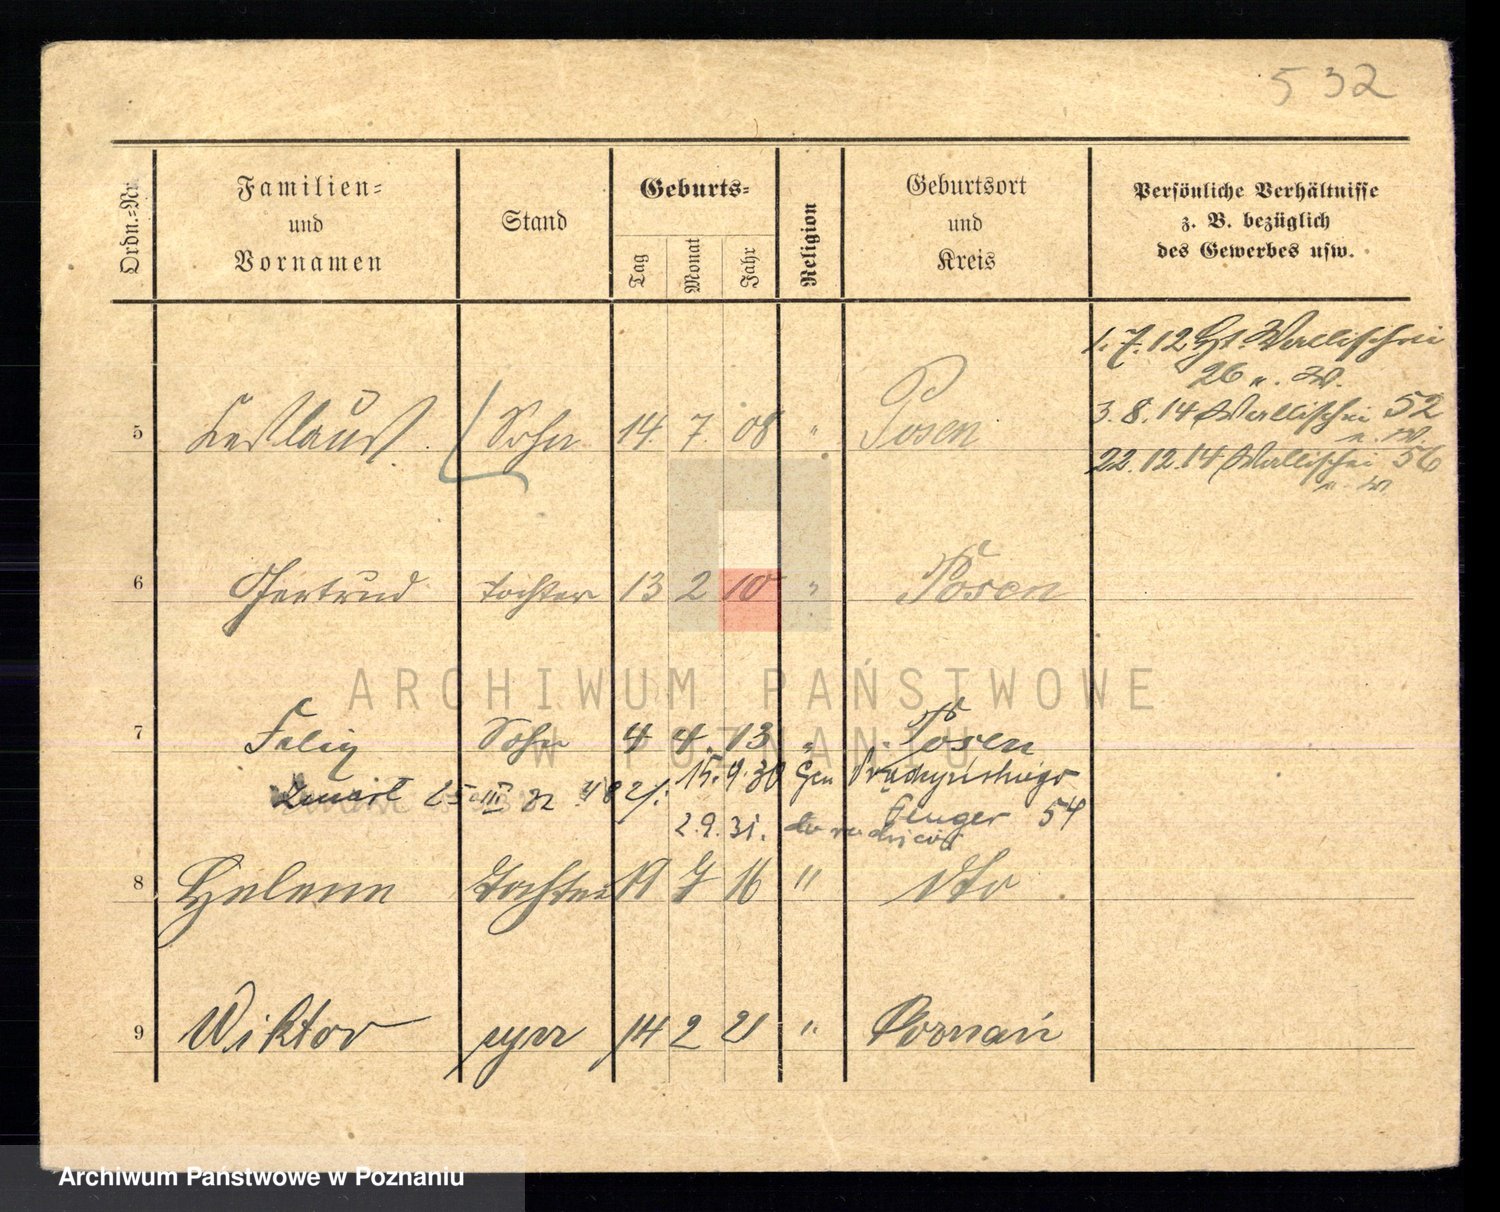 532
Ordn.=Nr.
Familien=
und
Vornamen
Stand
Geburts=
Tag
Monat
Jahr
Religion
Geburtsort
und
Kreis
Persönliche Verhältnisse
z. B. bezüglich
des Gewerbes usw.
1.7.12 Wallischei
26 u. W.
5 Sohn 14. 7. 08 " Posen
3.8.14 Wallischei 52
u. W.
22.12.14 Wallischei 56
u. W.
6 Gertrud Tochter 13 2 10 " Posen
7 Felix Sohn 4 4. 13 " Posen
15.9.30 Gen Prądzyńskiego
zmarł 25 III 32
2.9.31.
54
8 Helene Tochter 19 7 16 " dto
9 Wiktor syn 14 2 21 " Poznań
ARCHIWUM PAŃSTWOWE
W POZNANIU
Archiwum Państwowe w Poznaniu